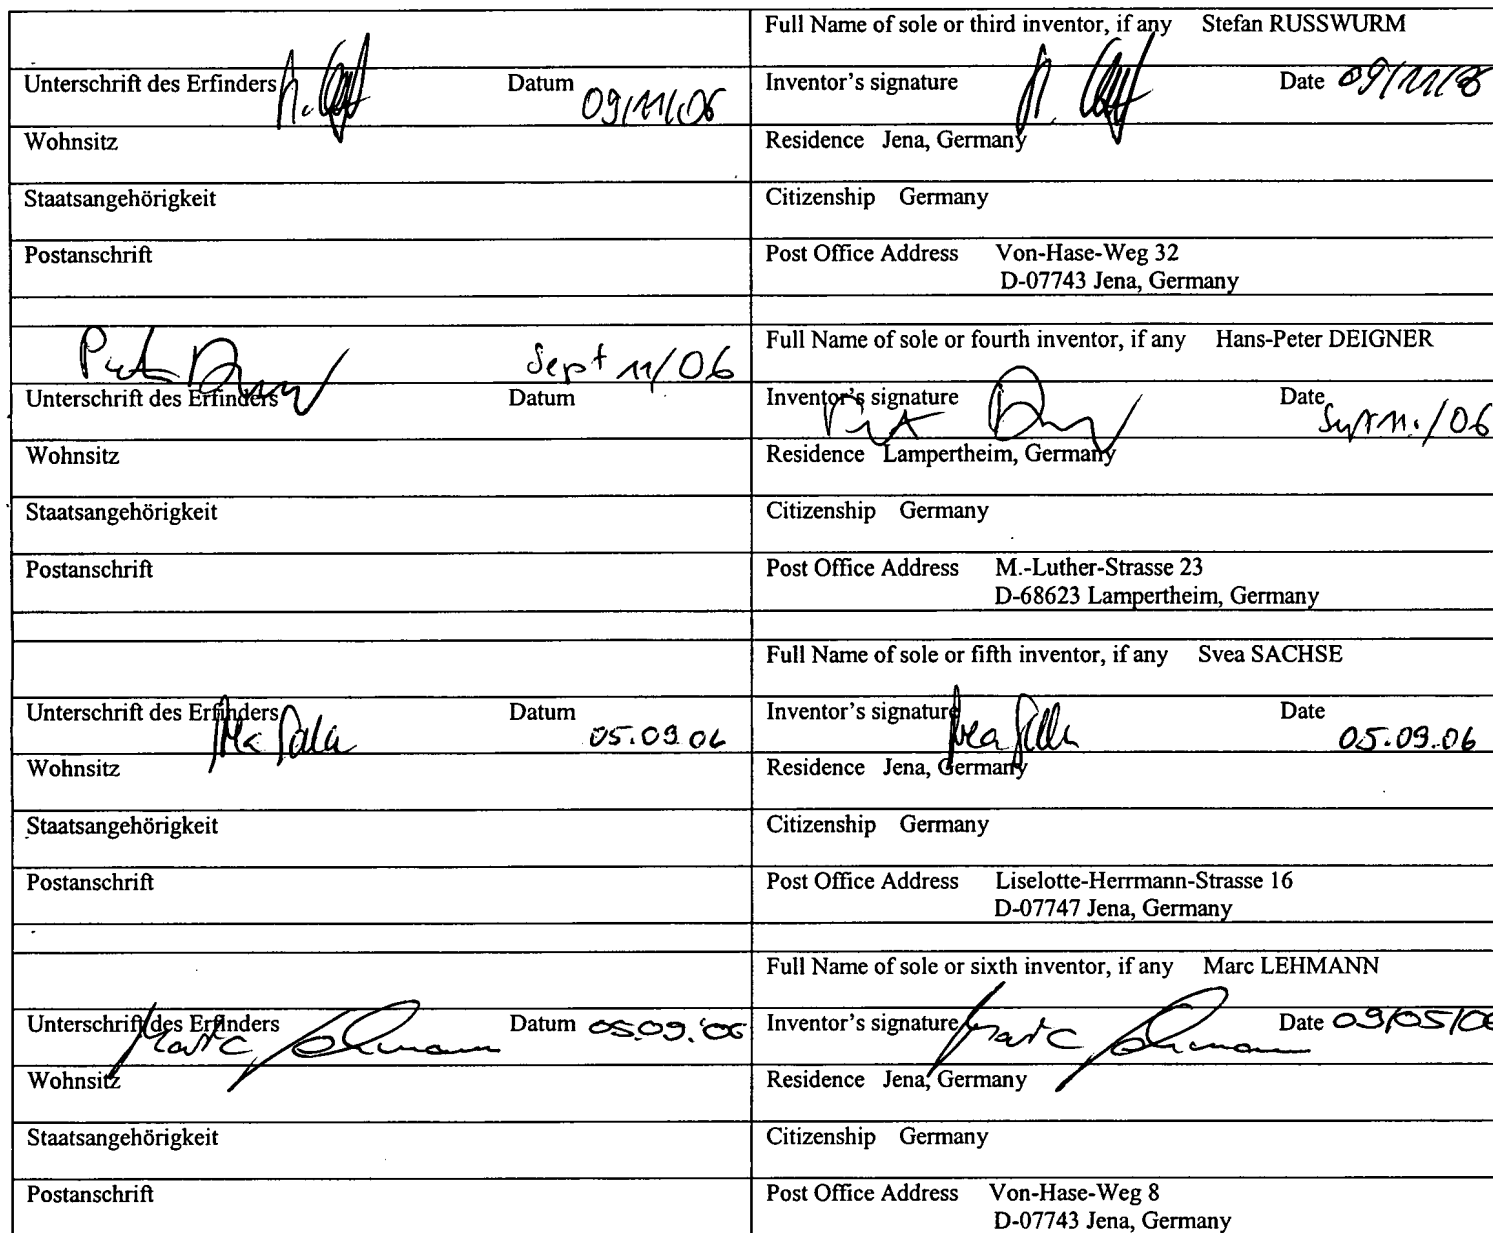 Full Name of sole or third inventor, if any Stefan RUSSWURM
Unterschrift des Erfinders Datum 09/11/06
Inventor's signature Date 09/11/06
Wohnsitz
Residence Jena, Germany
Staatsangehörigkeit
Citizenship Germany
Postanschrift
Post Office Address Von-Hase-Weg 32
D-07743 Jena, Germany
Full Name of sole or fourth inventor, if any Hans-Peter DEIGNER
Sept 11/06
Unterschrift des Erfinders Datum
Inventor's signature Date Sept 11./06
Wohnsitz
Residence Lampertheim, Germany
Staatsangehörigkeit
Citizenship Germany
Postanschrift
Post Office Address M.-Luther-Strasse 23
D-68623 Lampertheim, Germany
Full Name of sole or fifth inventor, if any Svea SACHSE
Unterschrift des Erfinders Datum 05.09.06
Inventor's signature Date 05.09.06
Wohnsitz
Residence Jena, Germany
Staatsangehörigkeit
Citizenship Germany
Postanschrift
Post Office Address Liselotte-Herrmann-Strasse 16
D-07747 Jena, Germany
Full Name of sole or sixth inventor, if any Marc LEHMANN
Unterschrift des Erfinders Marc Lehmann Datum 05.09.'06
Inventor's signature Marc Lehmann Date 09/05/06
Wohnsitz
Residence Jena, Germany
Staatsangehörigkeit
Citizenship Germany
Postanschrift
Post Office Address Von-Hase-Weg 8
D-07743 Jena, Germany